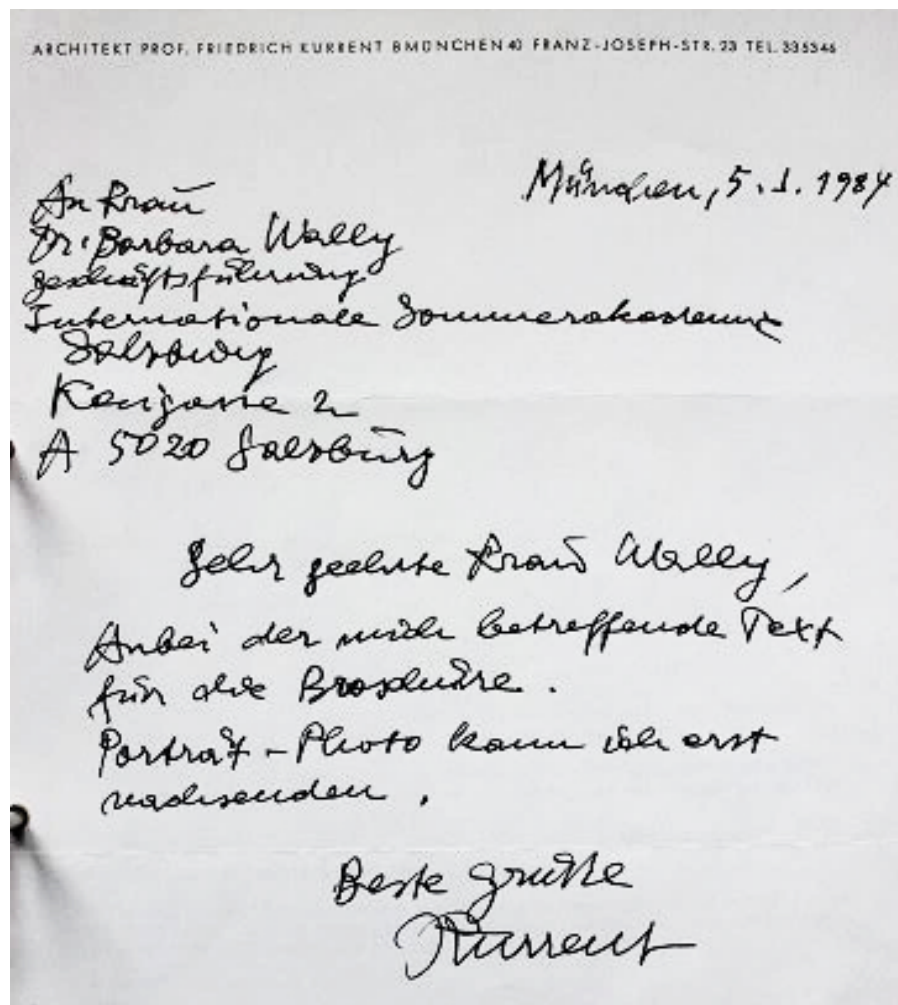 ARCHITEKT PROF. FRIEDRICH KURRENT 8MÜNCHEN 40 FRANZ-JOSEPH-STR. 23 TEL. 335346
München, 5.1.1984
An Frau
Dr. Barbara Wally
Geschäftsführung
Internationale Sommerakademie
Salzburg
Kaigasse 2
A 5020 Salzburg
Sehr geehrte Frau Wally,
Anbei der mich betreffende Text
für die Broschüre.
Porträt-Photo kann ich erst
nachsenden.
Beste Grüße
Kurrent